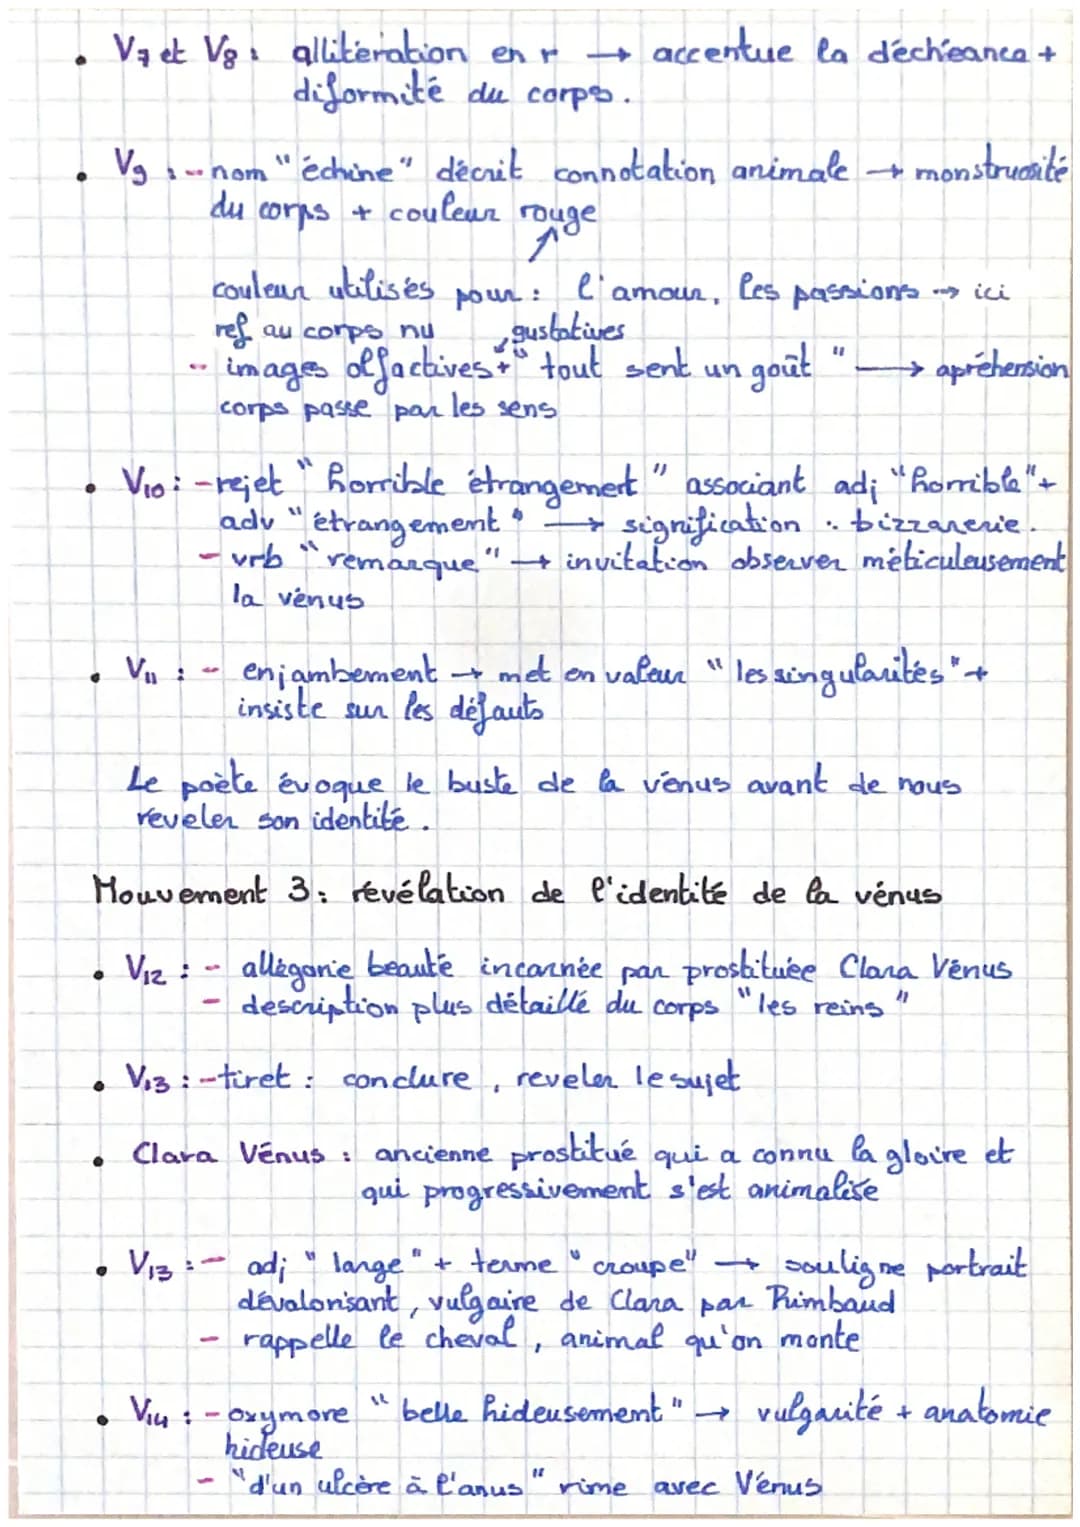 • V7 et V8 : allitération en r → accentue la déchéance +
diformité du corps.
• V9 : - nom "échine" décrit connotation animale → monstruosité
du corps + couleur rouge
couleur utilisés pour : l'amour, les passions → ici
ref au corps nu gustatives
- images olfactives + "tout sent un goût" → apréhension
corps passe par les sens
• V10 : - rejet "horrible étrangement" associant adj "horrible" +
adv "étrangement" → signification : bizzarerie.
- vrb "remarque" → invitation observer méticuleusement
la vénus
• V11 : - enjambement → met en valeur "les singularités" +
insiste sur les défauts
Le poète évoque le buste de la vénus avant de nous
réveler son identité.
Mouvement 3 : révélation de l'identité de la vénus
• V12 : - allégorie beauté incarnée par prostituée Clara Vénus
- description plus détaillé du corps "les reins"
• V13 : - tiret : conclure, reveler le sujet
• Clara Vénus : ancienne prostitué qui a connu la gloire et
qui progressivement s'est animalisé
• V13 : - adj "large" + terme "croupe" → souligne portrait
dévalorisant, vulgaire de Clara par Rimbaud
- rappelle le cheval, animal qu'on monte
• V14 : - oxymore "belle hideusement" → vulgarité + anatomie
hideuse
- "d'un ulcère à l'anus" rime avec Vénus